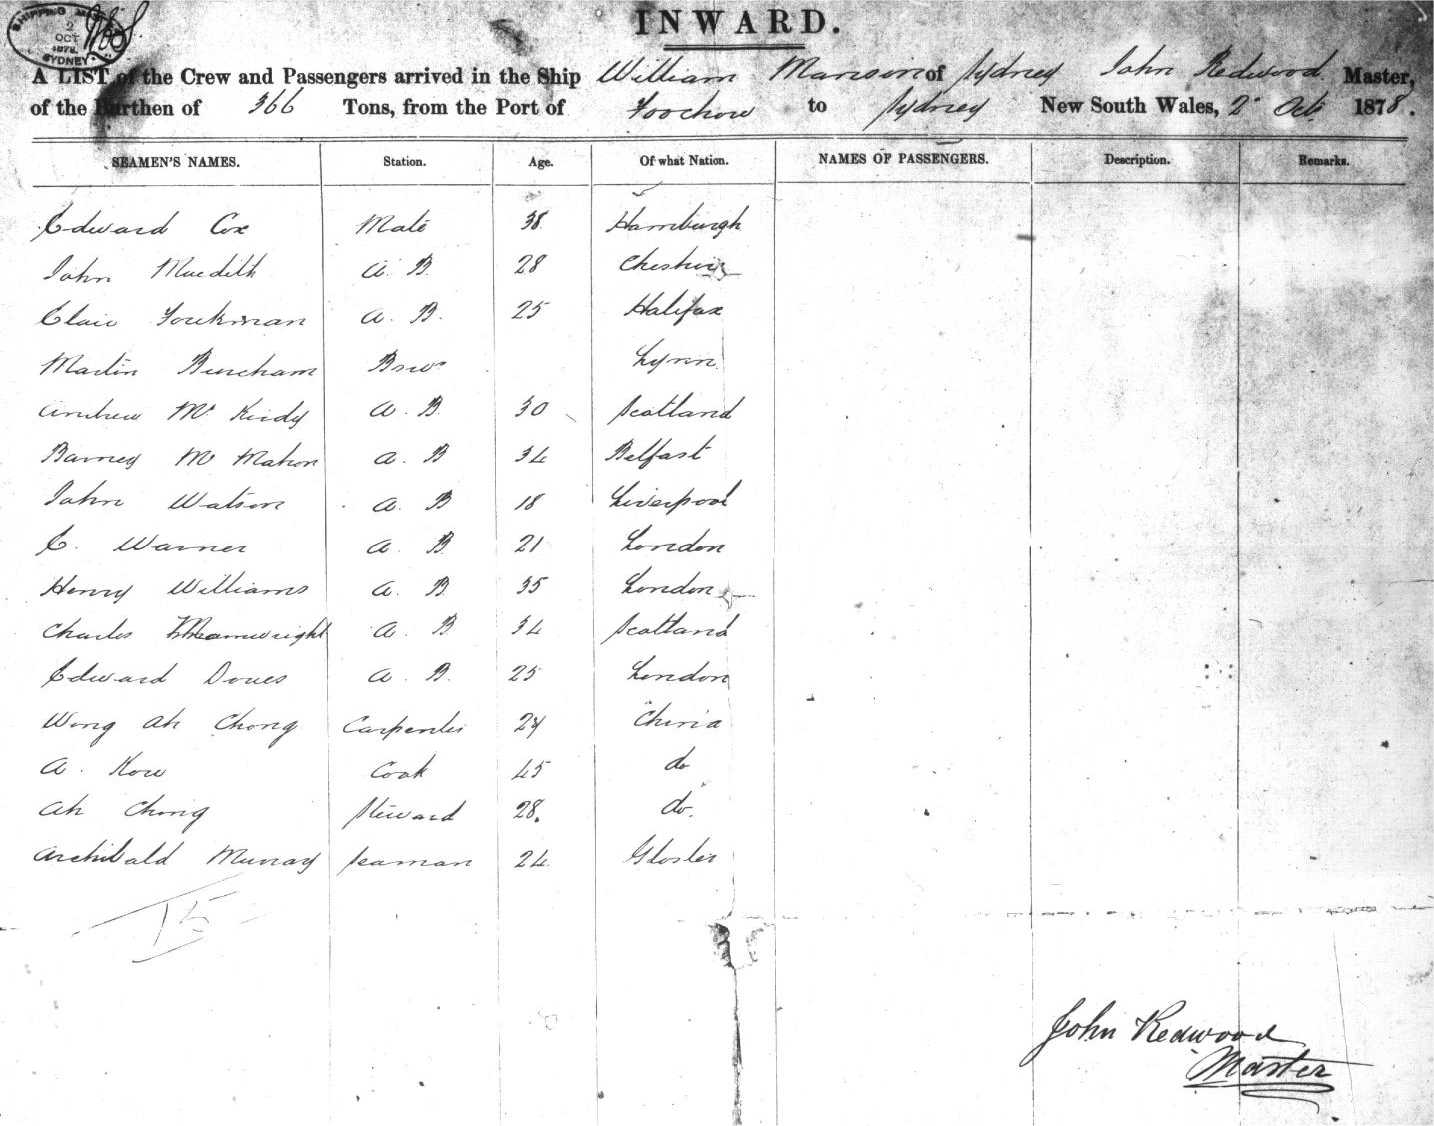 SHIPPING MAS
2
OCT
1878
SYDNEY
INWARD.
A LIST of the Crew and Passengers arrived in the Ship William Manson of Sydney John Redwood Master,
of the Burthen of 366 Tons, from the Port of Foochow to Sydney New South Wales, 2 Oct 1878.
SEAMEN'S NAMES. Station. Age. Of what Nation. NAMES OF PASSENGERS. Description. Remarks.
Edward Cox Mate 38 Hamburgh
John A. B. 28 Cheshire
A. B. 25 Halifax
Martin Burcham Lynn
Andrew Mc A. B. 30 Scotland
Barney Mc Mahon A. B 34 Belfast
John Watson A. B 18 Liverpool
C. Warner A. B. 21 London
Henry Williams A. B. 35 London
Charles A. B 34 Scotland
Edward Doues A. B. 25 London
Wong Ah Chong Carpenter 24 China
A. Kow Cook 45 do
Ah Chong Steward 28. do.
Archibald Murray Seaman 24 Gloster
15
John Redwood
Master